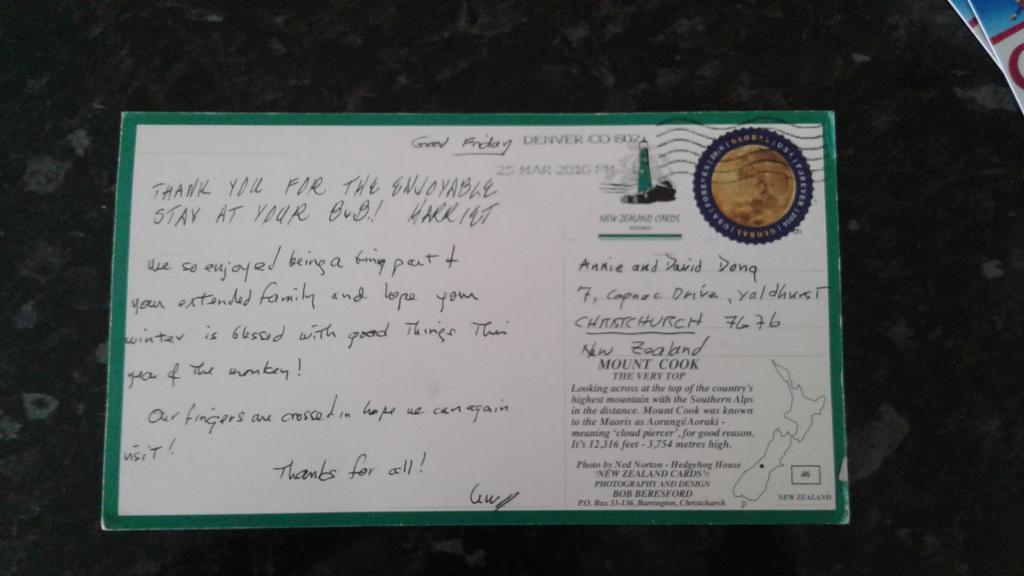 Good Friday
DENVER CO 802
25 MAR 2016 PM
THANK YOU FOR THE ENJOYABLE
STAY AT YOUR BnB!! HARRIET
We so enjoyed being a tiny part of
your extended family and hope your
winter is blessed with good Things This
year of The monkey!
Our fingers are crossed in hope we can again
visit!
Thanks for all!
NEW ZEALAND CARDS
GLOBAL | USA | FOREVER | 2016 | GLOBAL | USA | FOREVER | 2016 |
Annie and David Dong
7, Cognac Drive, Yaldhurst
CHRISTCHURCH 7676
New Zealand
MOUNT COOK
THE VERY TOP
Looking across at the top of the country's
highest mountain with the Southern Alps
in the distance. Mount Cook was known
to the Maoris as Aorangi/Aoruki -
meaning 'cloud piercer', for good reason.
It's 12,316 feet - 3,754 metres high.
Photo by Ned Norton - Hedgehog House
'NEW ZEALAND CARDS'©
PHOTOGRAPHY AND DESIGN
BOB BERESFORD
P.O. Box 33-136, Barrington, Christchurch
46
NEW ZEALAND